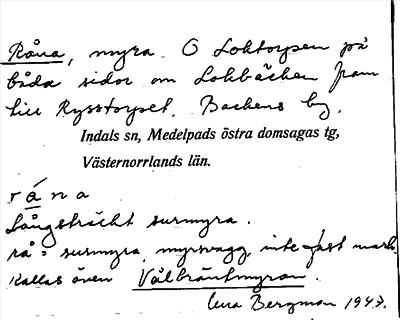 Råna, myra. O Loktorpen på
båda sidor om Lokbäcken fram
till Rysstorpet, Backens by.
Indals sn, Medelpads östra domsagas tg,
Västernorrlands län.
r å n a
Långsträckt surmyra.
rå = surmyra, myrvagg, inte fast mark.
Kallas även Vålbräntmyran.
Bergman 1943.